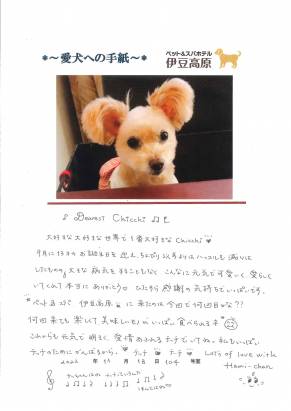 *～愛犬への手紙～*
ペット&スパホテル
伊豆高原
♪ Dearest Chicchi ♫
大好きな大好きな世界で1番大好きなChicchi
9月に13才のお誕生日を迎え
したものの、大きな病気をすることもなく こんなに元気で可愛く、愛らしく
いてくれて本当にありがとう ひたすら感謝の気持ちでいっぱいです。
ペット&スパ 伊豆高原 に来たのは今回で何回目かな??
何回来ても楽しくて美味しいものがいっぱい食べれるネ
これからも元気で明るく、愛情あふれるチッチでいてね。私もいっぱい
チッチのためにがんばるから。チッチ チッチ Lots of love with
Hami-chan
2022 年 11 月 18 日 104 号室